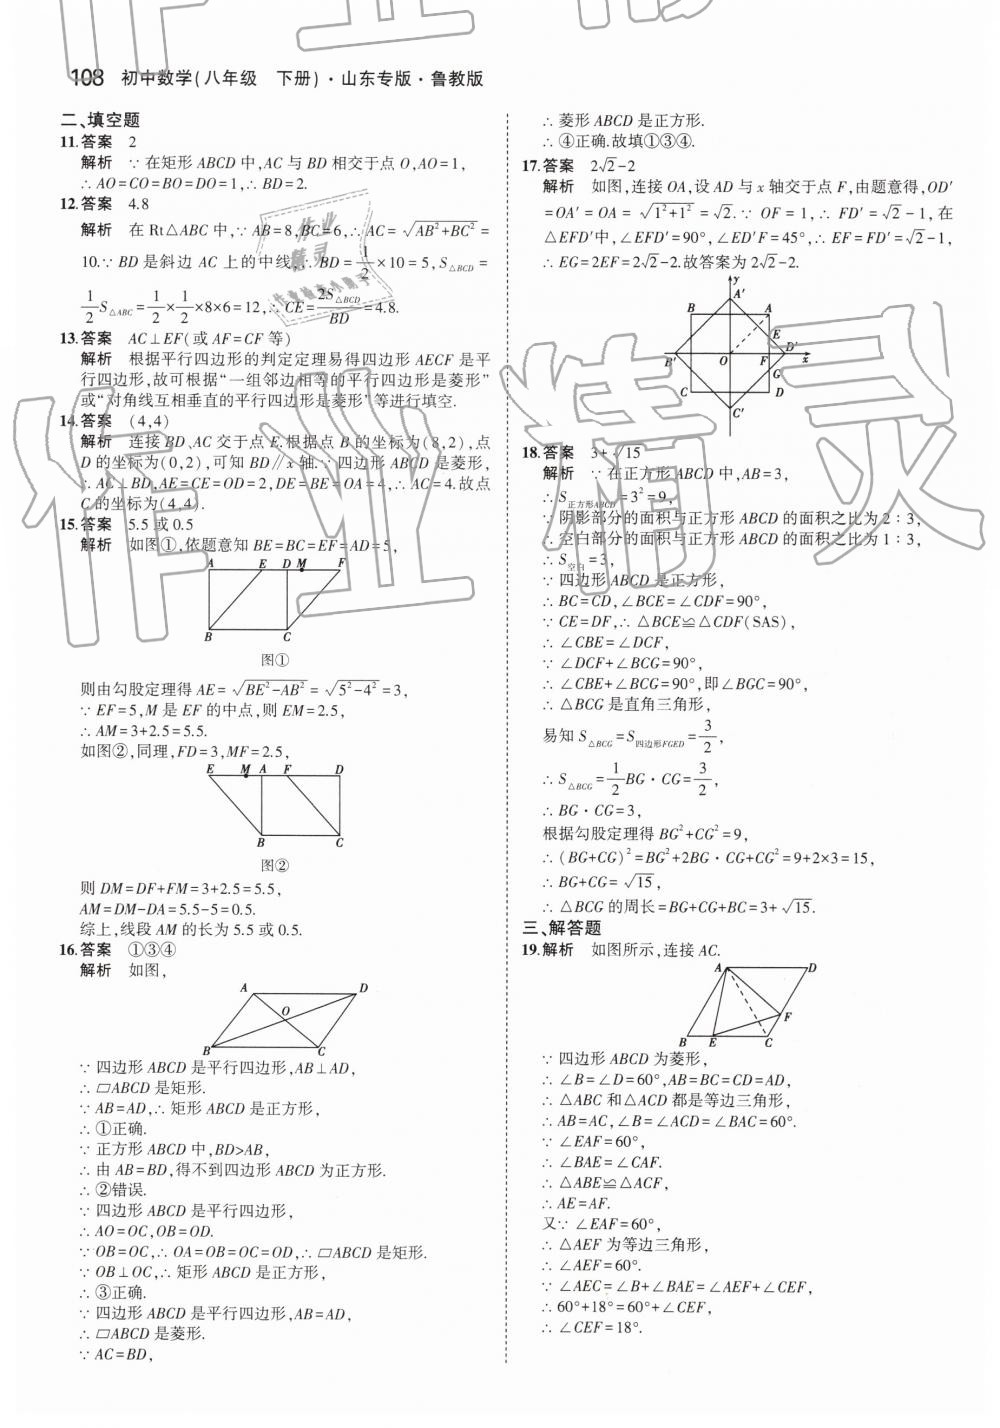 108 初中数学(八年级 下册)·山东专版·鲁教版
二、填空题
11.答案 2
解析 ∵在矩形ABCD中,AC与BD相交于点O,AO=1,
∴AO=CO=BO=DO=1,∴BD=2.
12.答案 4.8
解析 在Rt△ABC中,∵AB=8,BC=6,∴AC=√(AB²+BC²)=
10.∵BD是斜边AC上的中线,∴BD=1/2×10=5,S△BCD=
1/2S△ABC=1/2×1/2×8×6=12,∴CE=2S△BCD/BD=4.8.
13.答案 AC⊥EF(或AF=CF等)
解析 根据平行四边形的判定定理易得四边形AECF是平
行四边形,故可根据“一组邻边相等的平行四边形是菱形”
或“对角线互相垂直的平行四边形是菱形”等进行填空.
14.答案 (4,4)
解析 连接BD、AC交于点E,根据点B的坐标为(8,2),点
D的坐标为(0,2),可知BD∥x轴.∵四边形ABCD是菱形,
∴AC⊥BD,AE=CE=OD=2,DE=BE=OA=4,∴AC=4.故点
C的坐标为(4,4).
15.答案 5.5或0.5
解析 如图①,依题意知BE=BC=EF=AD=5,
A E D M F
B C
图①
则由勾股定理得AE=√(BE²-AB²)=√(5²-4²)=3,
∵EF=5,M是EF的中点,则EM=2.5,
∴AM=3+2.5=5.5.
如图②,同理,FD=3,MF=2.5,
E M A F D
B C
图②
则DM=DF+FM=3+2.5=5.5,
AM=DM-DA=5.5-5=0.5.
综上,线段AM的长为5.5或0.5.
16.答案 ①③④
解析 如图,
A D
O
B C
∵四边形ABCD是平行四边形,AB⊥AD,
∴▱ABCD是矩形.
∵AB=AD,∴矩形ABCD是正方形,
∴①正确.
∵正方形ABCD中,BD>AB,
∴由AB=BD,得不到四边形ABCD为正方形.
∴②错误.
∵四边形ABCD是平行四边形,
∴AO=OC,OB=OD.
∵OB=OC,∴OA=OB=OC=OD,∴▱ABCD是矩形.
∵OB⊥OC,∴矩形ABCD是正方形,
∴③正确.
∵四边形ABCD是平行四边形,AB=AD,
∴▱ABCD是菱形.
∵AC=BD,
∴菱形ABCD是正方形.
∴④正确.故填①③④.
17.答案 2√2-2
解析 如图,连接OA,设AD与x轴交于点F,由题意得,OD′
=OA′=OA=√(1²+1²)=√2.∵OF=1,∴FD′=√2-1,在
△EFD′中,∠EFD′=90°,∠ED′F=45°,∴EF=FD′=√2-1,
∴EG=2EF=2√2-2.故答案为2√2-2.
y
A′
B A
E
B′ O F D′ x
G
C D
C′
18.答案 3+√15
解析 ∵在正方形ABCD中,AB=3,
∴S正方形ABCD=3²=9,
∵阴影部分的面积与正方形ABCD的面积之比为2:3,
∴空白部分的面积与正方形ABCD的面积之比为1:3,
∴S空白=3,
∵四边形ABCD是正方形,
∴BC=CD,∠BCE=∠CDF=90°,
∵CE=DF,∴△BCE≌△CDF(SAS),
∴∠CBE=∠DCF,
∵∠DCF+∠BCG=90°,
∴∠CBE+∠BCG=90°,即∠BGC=90°,
∴△BCG是直角三角形,
易知S△BCG=S四边形FGED=3/2,
∴S△BCG=1/2BG·CG=3/2,
∴BG·CG=3,
根据勾股定理得BG²+CG²=9,
∴(BG+CG)²=BG²+2BG·CG+CG²=9+2×3=15,
∴BG+CG=√15,
∴△BCG的周长=BG+CG+BC=3+√15.
三、解答题
19.解析 如图所示,连接AC.
A D
F
B E C
∵四边形ABCD为菱形,
∴∠B=∠D=60°,AB=BC=CD=AD,
∴△ABC和△ACD都是等边三角形,
∴AB=AC,∠B=∠ACD=∠BAC=60°.
∵∠EAF=60°,
∴∠BAE=∠CAF.
∴△ABE≌△ACF,
∴AE=AF.
又∵∠EAF=60°,
∴△AEF为等边三角形,
∴∠AEF=60°.
∵∠AEC=∠B+∠BAE=∠AEF+∠CEF,
∴60°+18°=60°+∠CEF,
∴∠CEF=18°.